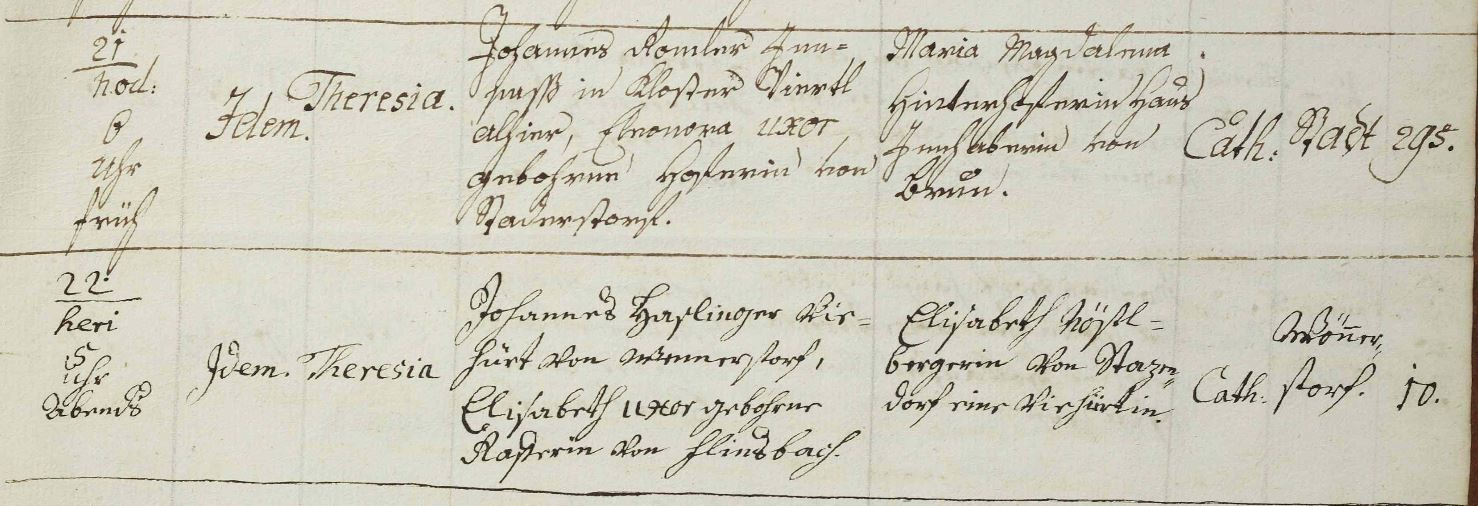 21
hod:
6
Uhr
früh
Idem.
Theresia.
Johannes Romler Inn=
saß in Kloster Viertl
alhier, Eleonora uxor
gebohrne Hoferin von
Staderstorf.
Maria Magdalena
Hinterhoferin Haus
Innhaberin von
Brun.
Cath: Stadt 295.
22
heri
5
Uhr
Abends
Idem. Theresia
Johannes Haslinger Vie=
hürt von Wennerstorf,
Elisabeth uxor gebohrne
Rasterin von Flinsbach.
Elisabeth Nöstl=
bergerin von Stazen=
dorf eine Viehürtin.
Cath:
Wönner=
storf. 10.